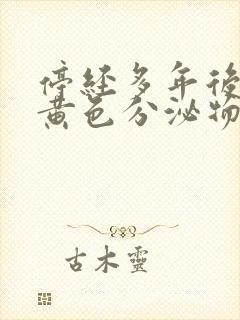 停經多年後
黃色分泌物
古木靈